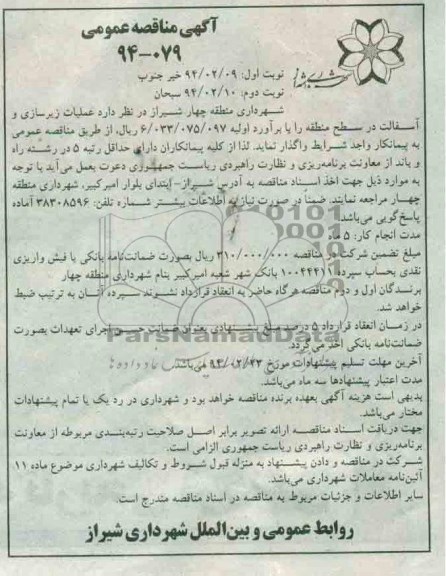 آگهی مناقصه عمومی
۹۴-۰۷۹
نوبت اول: ۹۴/۰۲/۰۹ خبر جنوب
نوبت دوم: ۹۴/۰۲/۱۰ سبحان
شهرداری منطقه چهار شیراز در نظر دارد عملیات زیرسازی و
آسفالت در سطح منطقه را با برآورد اولیه ۶/۰۳۳/۰۷۵/۰۹۷ ریال، از طریق مناقصه عمومی
به پیمانکار واجد شرایط واگذار نماید. لذا از کلیه پیمانکاران دارای حداقل رتبه ۵ در رشته راه
و باند از معاونت برنامه‌ریزی و نظارت راهبردی ریاست جمهوری دعوت بعمل می‌آید با توجه
به موارد ذیل جهت اخذ اسناد مناقصه به آدرس شیراز- ابتدای بلوار امیرکبیر، شهرداری منطقه
چهار مراجعه نمایند. ضمناً در صورت نیاز به اطلاعات بیشتر شماره تلفن: ۳۸۳۰۸۵۹۶ آماده
پاسخ‌گویی می‌باشد.
مدت انجام کار: ۵ ماه
مبلغ تضمین شرکت در مناقصه ۳۱۰/۰۰۰/۰۰۰ ریال بصورت ضمانت‌نامه بانکی یا فیش واریزی
نقدی بحساب سپرده ۱۰۰۴۴۴۱۱ بانک شهر شعبه امیرکبیر بنام شهرداری منطقه چهار
برندگان اول و دوم مناقصه هرگاه حاضر به انعقاد قرارداد نشوند سپرده آنان به ترتیب ضبط
خواهد شد.
در زمان انعقاد قرارداد ۵ درصد مبلغ پیشنهادی بعنوان ضمانت حسن اجرای تعهدات بصورت
ضمانت‌نامه بانکی اخذ می‌گردد.
ParsNamadData
آخرین مهلت تسلیم پیشنهادات مورخ ۹۴/۰۲/۲۳ می‌باشد.
مدت اعتبار پیشنهادها سه ماه می‌باشد.
بدیهی است هزینه آگهی بعهده برنده مناقصه خواهد بود و شهرداری در رد یک یا تمام پیشنهادات
مختار می‌باشد.
جهت دریافت اسناد مناقصه ارائه تصویر برابر اصل صلاحیت رتبه‌بندی مربوطه از معاونت
برنامه‌ریزی و نظارت راهبردی ریاست جمهوری الزامی است.
شرکت در مناقصه و دادن پیشنهاد به منزله قبول شروط و تکالیف شهرداری موضوع ماده ۱۱
آئین‌نامه معاملات شهرداری می‌باشد.
سایر اطلاعات و جزئیات مربوط به مناقصه در اسناد مناقصه مندرج است.
روابط عمومی و بین‌الملل شهرداری شیراز